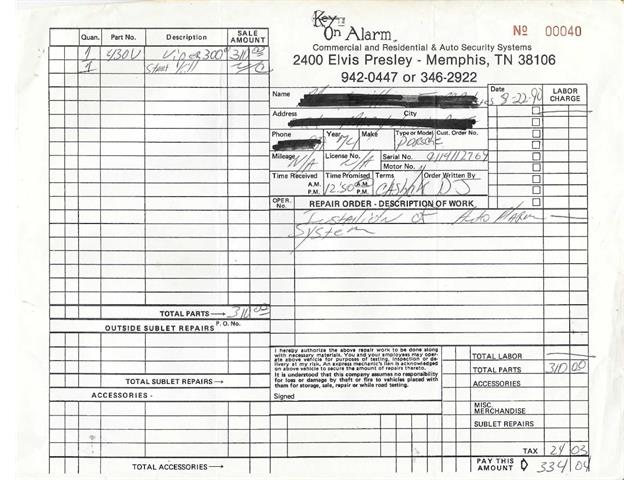 Key
On Alarm
Nº 00040
Commercial and Residential & Auto Security Systems
2400 Elvis Presley - Memphis, TN 38106
942-0447 or 346-2922
Quan. Part No. Description SALE AMOUNT
1 430V Viper 300 310 03
1 N/C
Name
Date 8-22-90
LABOR CHARGE
Address City
Phone Year 74 Make Type or Model Porsche Cust. Order No.
Mileage N/A License No. N/A Serial No. 9114112769
Motor No.
Time Received A.M. P.M. Time Promised 12:30 A.M. P.M. Terms Order Written By DJ
OPER. No. REPAIR ORDER - DESCRIPTION OF WORK
of Auto Alarm
System
TOTAL PARTS 310 00
OUTSIDE SUBLET REPAIRS P. O. No.
I hereby authorize the above repair work to be done along
with necessary materials. You and your employees may oper-
ate above vehicle for purposes of testing, inspection or de-
livery at my risk. An express mechanic's lien is acknowledged
on above vehicle to secure the amount of repairs thereto.
It is understood that this company assumes no responsibility
for loss or damage by theft or fire to vehicles placed with
them for storage, sale, repair or while road testing.
Signed
TOTAL SUBLET REPAIRS
ACCESSORIES -
TOTAL ACCESSORIES
TOTAL LABOR
TOTAL PARTS 310 00
ACCESSORIES
MISC. MERCHANDISE
SUBLET REPAIRS
TAX 24 03
PAY THIS AMOUNT 334 04